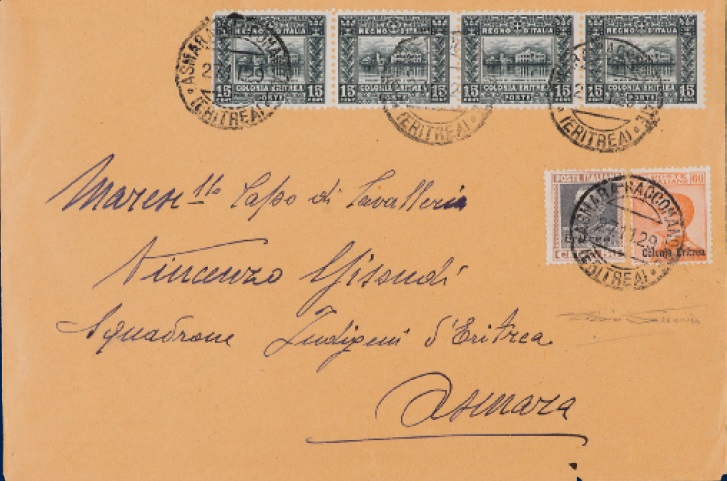 REGNO D'ITALIA REGNO D'ITALIA REGNO D'ITALIA REGNO D'ITALIA
15 COLONIA ERITREA 15 15 COLONIA ERITREA 15 15 COLONIA ERITREA 15 15 COLONIA ERITREA 15
POSTE POSTE POSTE POSTE
ASMARA
(ERITREA) (ERITREA) (ERITREA)
Maresc llo Capo di Cavalleria
POSTE ITALIANE 60
ASMARA RACCOMAN
11.29
Colonia Eritrea
(ERITREA)
Vincenzo Gisondi
Squadrone Indigeni d'Eritrea
Asmara